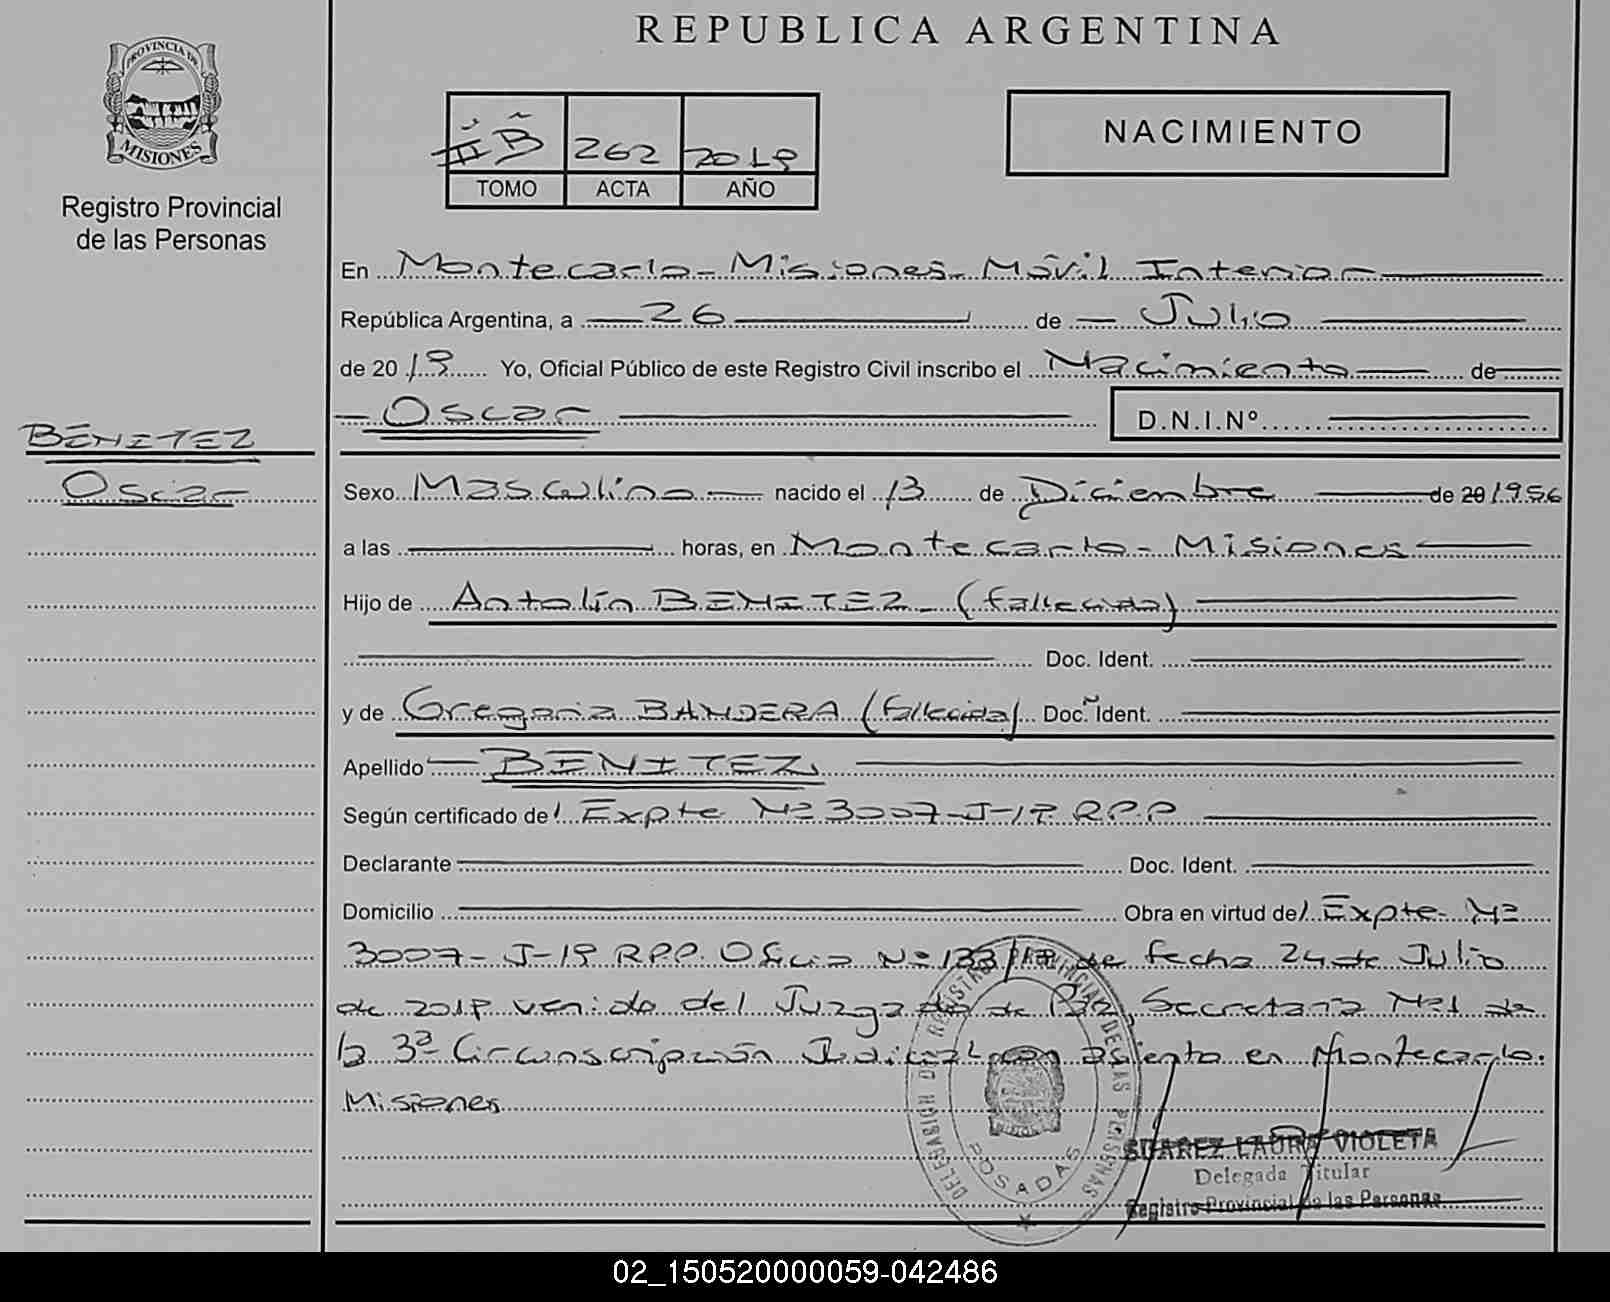 REPUBLICA ARGENTINA
PROVINCIA DE
MISIONES
Registro Provincial
de las Personas
II B 262 2019
TOMO ACTA AÑO
NACIMIENTO
En Montecarlo - Misiones - Móvil Interior
República Argentina, a 26 de Julio
de 2019 Yo, Oficial Público de este Registro Civil inscribo el Nacimiento de
Oscar D.N.I.Nº
BENITEZ
Oscar
Sexo Masculino nacido el 13 de Diciembre de 20 1956
a las horas, en Montecarlo - Misiones
Hijo de Antolín BENITEZ - (fallecido)
Doc. Ident.
y de Gregoria BANDERA (fallecida) Doc. Ident.
Apellido BENITEZ
Según certificado de Expte Nº 3007-J-19 RPP
Declarante Doc. Ident.
Domicilio Obra en virtud de Expte Nº
3007-J-19 RPP. Oficio Nº 133/19 de fecha 24 de Julio
de 2019 venido del Juzgado de Paz, Secretaría Nº1 de
la 3ª Circunscripción Judicial con asiento en Montecarlo.
Misiones
DELEGACION DE REGISTRO PROVINCIAL DE LAS PERSONAS
POSADAS
SUAREZ LAURA VIOLETA
Delegada Titular
Registro Provincial de las Personas
02_150520000059-042486